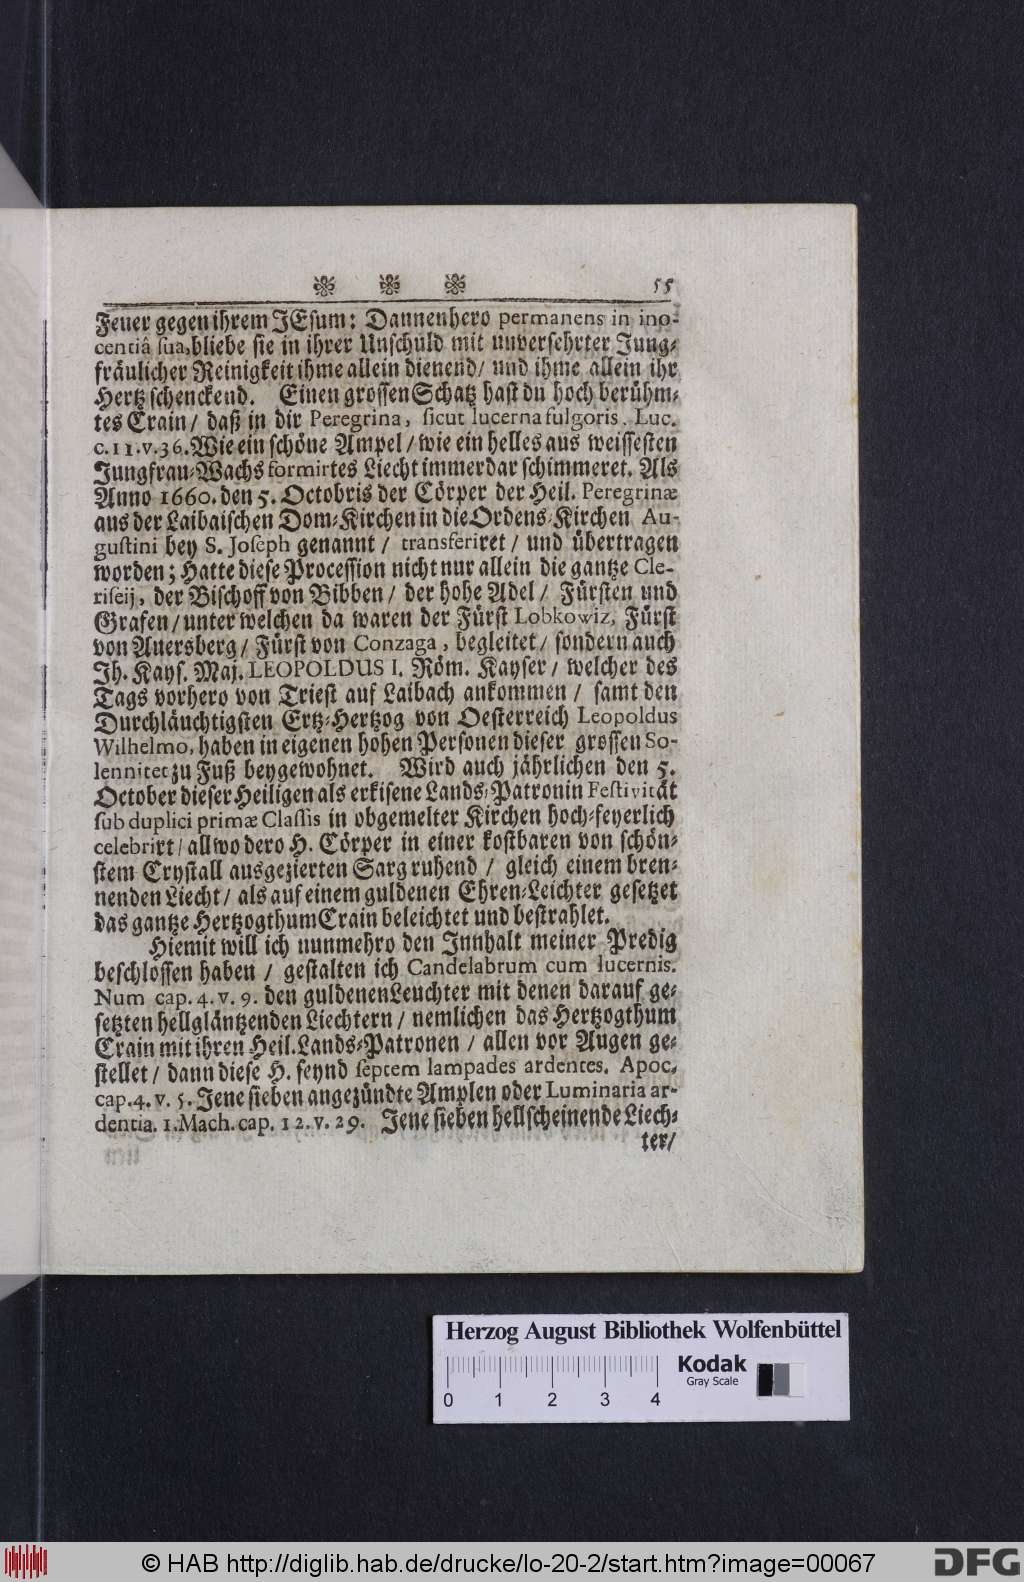 55
Feuer gegen ihrem JEsum: Dannenhero permanens in ino-
centiâ sua, bliebe sie in ihrer Unschuld mit unversehrter Jung-
fräulicher Reinigkeit ihme allein dienend/ und ihme allein ihr
Hertz schenckend. Einen grossen Schatz hast du hoch berühm-
tes Crain/ daß in dir Peregrina, sicut lucerna fulgoris. Luc.
c. 11. v. 36. Wie ein schöne Ampel/ wie ein helles aus weissesten
Jungfrau-Wachs formirtes Liecht immerdar schimmeret. Als
Anno 1660. den 5. Octobris der Cörper der Heil. Peregrinæ
aus der Laibaischen Dom-Kirchen in die Ordens-Kirchen Au-
gustini bey S. Joseph genannt/ transferiret/ und übertragen
worden; Hatte diese Procession nicht nur allein die gantze Cle-
riseij, der Bischoff von Bibben/ der hohe Adel/ Fürsten und
Grafen/ unter welchen da waren der Fürst Lobkowiz, Fürst
von Auersberg/ Fürst von Conzaga, begleitet/ sondern auch
Jh. Kays. Maj. LEOPOLDUS I. Röm. Kayser/ welcher des
Tags vorhero von Triest auf Laibach ankommen/ samt den
Durchläuchtigsten Ertz-Hertzog von Oesterreich Leopoldus
Wilhelmo, haben in eigenen hohen Personen dieser grossen So-
lennitet zu Fuß beygewohnet. Wird auch jährlichen den 5.
October dieser Heiligen als erkisene Lands-Patronin Festivität
sub duplici primæ Classis in obgemelter Kirchen hoch-feyerlich
celebrirt/ allwo dero H. Cörper in einer kostbaren von schön-
stem Crystall ausgezierten Sarg ruhend/ gleich einem bren-
nenden Liecht/ als auf einem guldenen Ehren-Leichter gesetzet
das gantze Hertzogthum Crain beleichtet und bestrahlet.
Hiemit will ich nunmehro den Innhalt meiner Predig
beschlossen haben/ gestalten ich Candelabrum cum lucernis.
Num cap. 4. v. 9. den guldenen Leuchter mit denen darauf ge-
setzten hellgläntzenden Liechtern/ nemlichen das Hertzogthum
Crain mit ihren Heil. Lands-Patronen/ allen vor Augen ge-
stellet/ dann diese H. seynd septem lampades ardentes. Apoc.
cap. 4. v. 5. Jene sieben angezündte Amplen oder Luminaria ar-
dentia. 1. Mach. cap. 12. v. 29. Jene sieben hellscheinende Liech-
ter/
Herzog August Bibliothek Wolfenbüttel
Kodak
Gray Scale
0 1 2 3 4
© HAB http://diglib.hab.de/drucke/lo-20-2/start.htm?image=00067
DFG